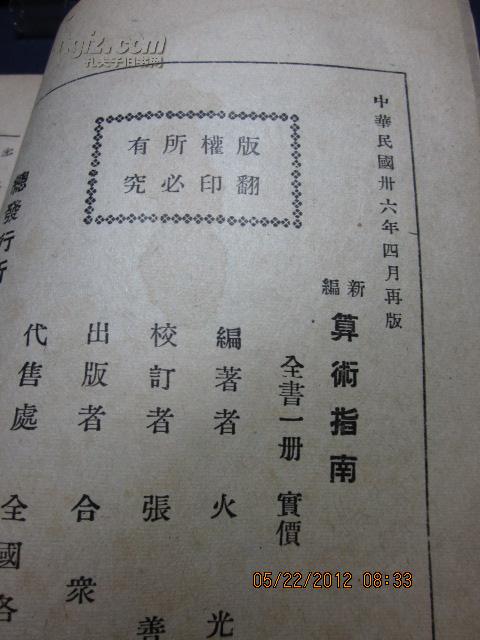 中華民國卅六年四月再版
版權所有
翻印必究
新編
算術指南
全書一册 實價
編著者 火 光
校訂者 張 善
出版者 合 衆
代售處 全國各
總發行所
孔夫子旧书网
05/22/2012 08:33